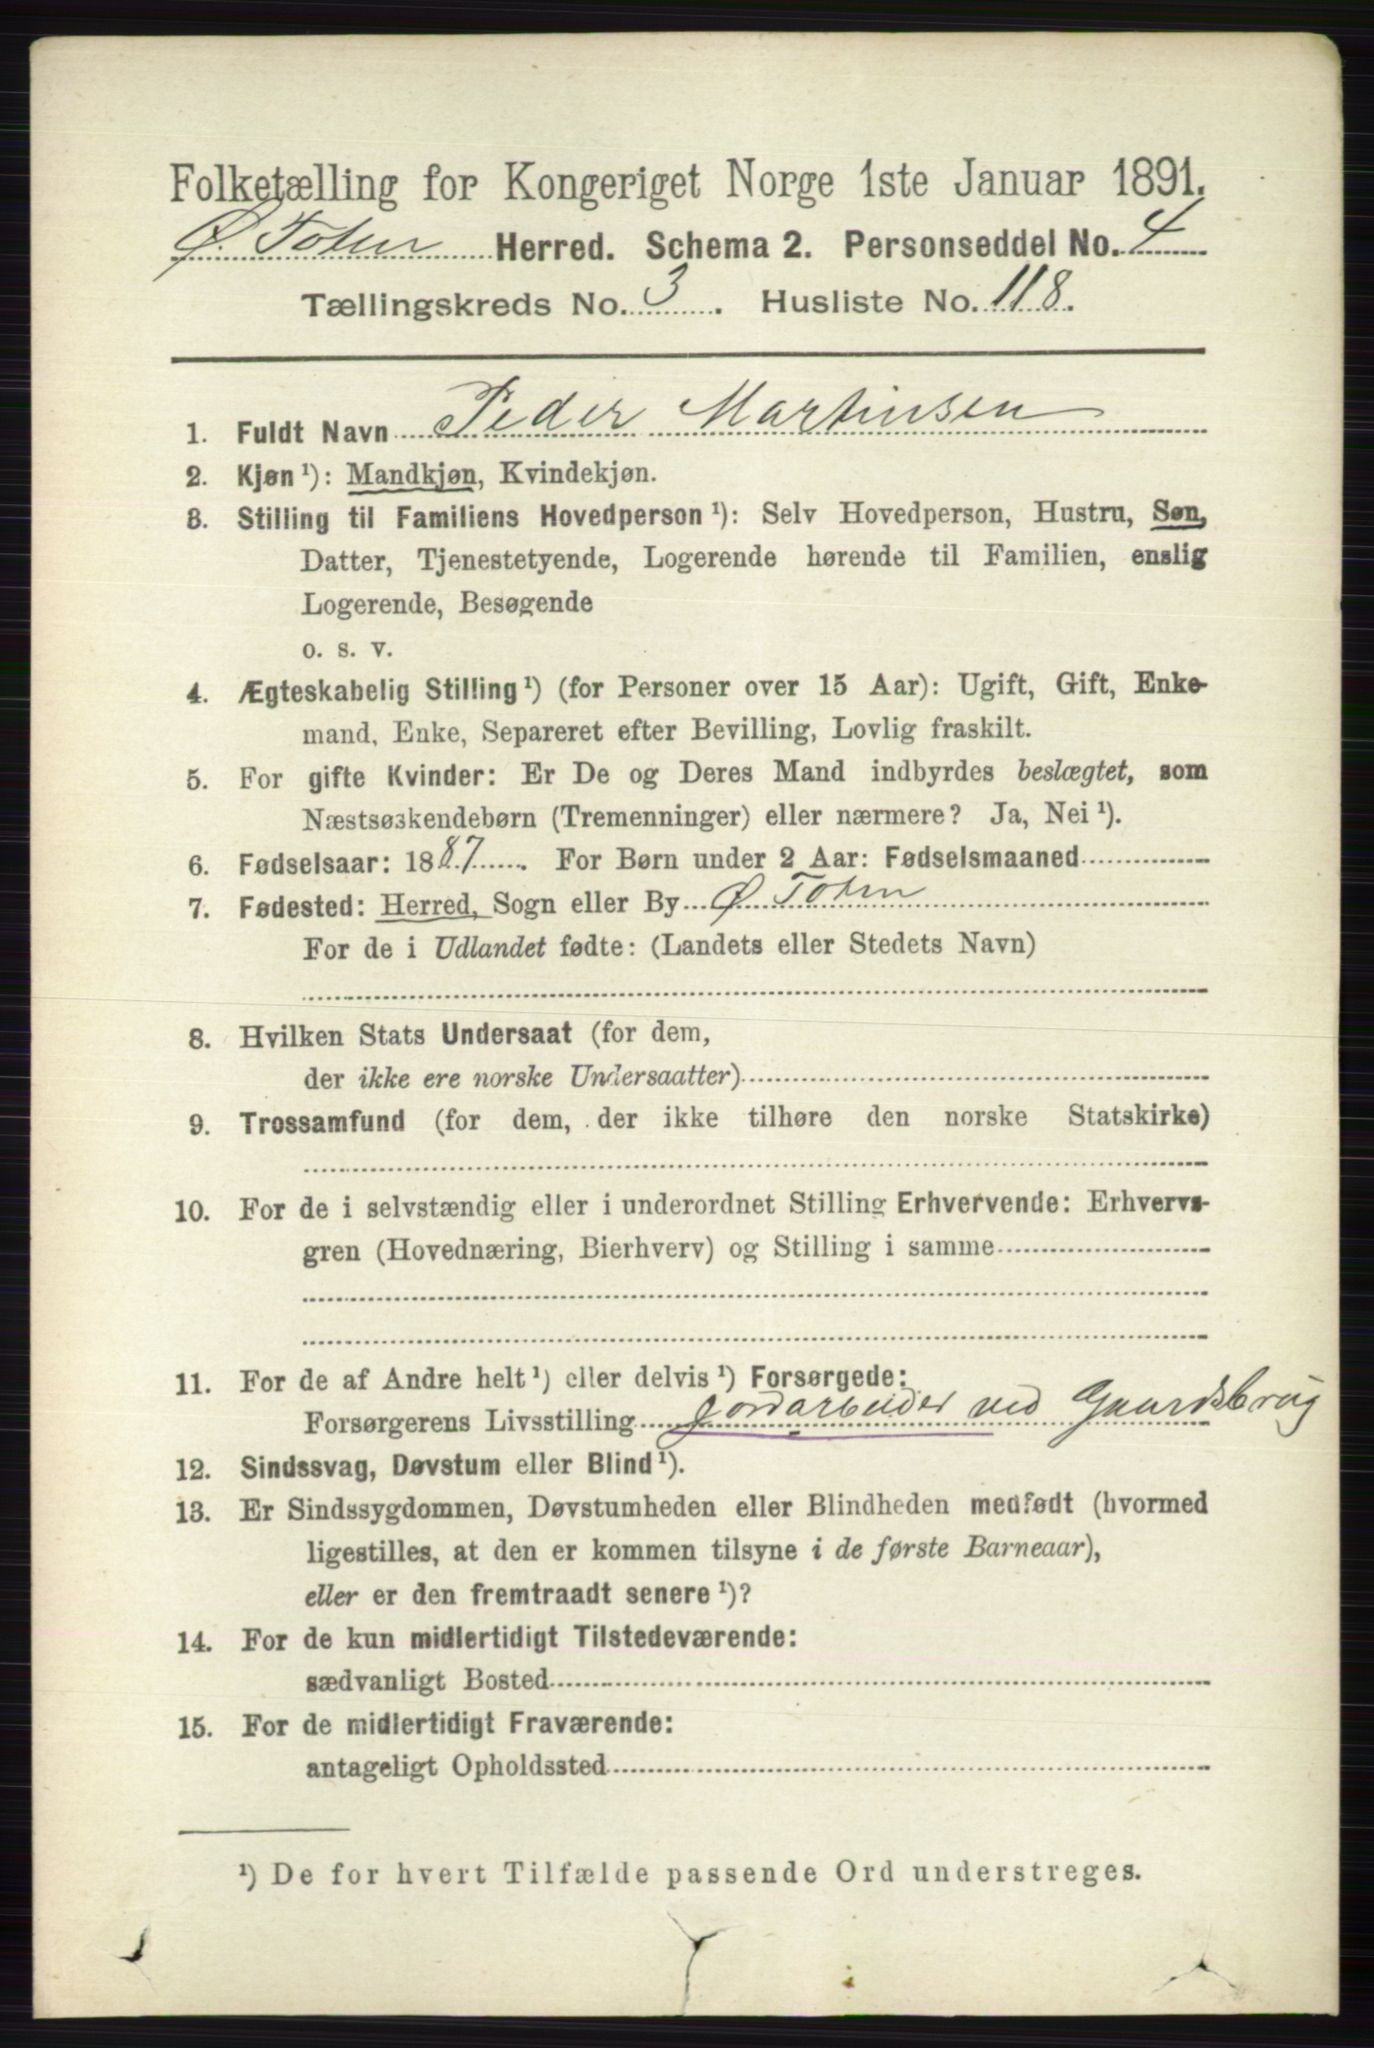 Folketælling for Kongeriget Norge 1ste Januar 1891.
Ø. Toten Herred. Schema 2. Personseddel No. 4
Tællingskreds No. 3. Husliste No. 118.
1. Fuldt Navn Peder Martinsen
2. Kjøn¹): Mandkjøn, Kvindekjøn.
3. Stilling til Familiens Hovedperson¹): Selv Hovedperson, Hustru, Søn,
Datter, Tjenestetyende, Logerende hørende til Familien, enslig
Logerende, Besøgende
o. s. v.
4. Ægteskabelig Stilling¹) (for Personer over 15 Aar): Ugift, Gift, Enke-
mand, Enke, Separeret efter Bevilling, Lovlig fraskilt.
5. For gifte Kvinder: Er De og Deres Mand indbyrdes beslægtet, som
Næstsøskendebørn (Tremenninger) eller nærmere? Ja, Nei¹).
6. Fødselsaar: 1887. For Børn under 2 Aar: Fødselsmaaned
7. Fødested: Herred, Sogn eller By Ø Toten
For de i Udlandet fødte: (Landets eller Stedets Navn)
8. Hvilken Stats Undersaat (for dem,
der ikke ere norske Undersaatter)
9. Trossamfund (for dem, der ikke tilhøre den norske Statskirke)
10. For de i selvstændig eller i underordnet Stilling Erhvervende: Erhvervs-
gren (Hovednæring, Bierhverv) og Stilling i samme
11. For de af Andre helt¹) eller delvis¹) Forsørgede:
Forsørgerens Livsstilling Jordarbeider ved Gaardsbrug
12. Sindssvag, Døvstum eller Blind¹).
13. Er Sindssygdommen, Døvstumheden eller Blindheden medfødt (hvormed
ligestilles, at den er kommen tilsyne i de første Barneaar),
eller er den fremtraadt senere¹)?
14. For de kun midlertidigt Tilstedeværende:
sædvanligt Bosted
15. For de midlertidigt Fraværende:
antageligt Opholdssted
¹) De for hvert Tilfælde passende Ord understreges.